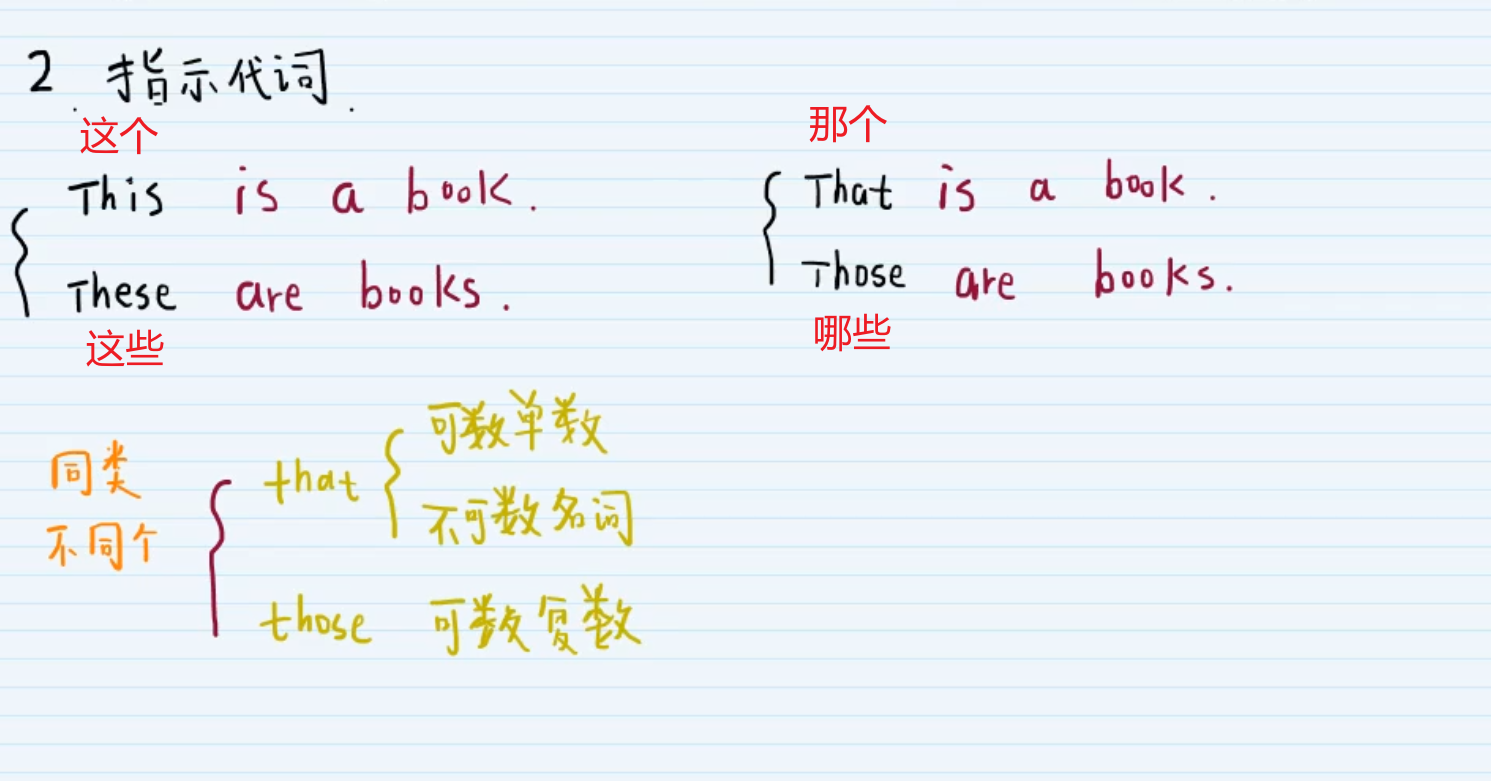 2. 指示代词.
这个
This is a book.
These are books.
这些
那个
That is a book.
Those are books.
哪些
同类
不同个
that
可数单数
不可数名词
those 可数复数